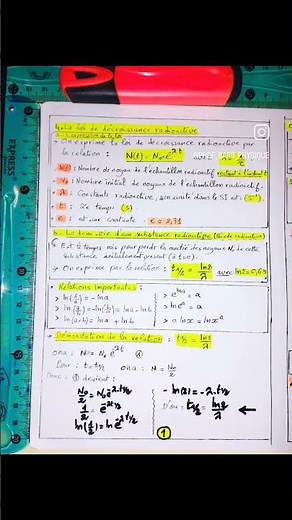 4- La loi de décroissance radioactive
a- Loi
- On exprime la loi de décroissance radioactive par
la relation : N(t) = N₀.e^-λt avec
N(t) : Nombre de noyau de l'échantillon radioactif restant à l'instant t
N₀ : Nombre initial de noyaux de l'échantillon radioactif.
λ : Constante radioactive, son unité dans le SI est (s⁻¹)
t : Le temps (s)
e : est une constante e = 2,71
b- La demi-vie d'une substance radioactive
- Est le temps mis pour perdre la moitié des noyaux N₀ de cette
substance initialement présent (à t=0).
→ On exprime par la relation : t1/2 = ln2/λ avec ln2=0,69
Relations Importantes :
> ln(1/a) = -ln a
> e^ln a = a
> ln(a/b) = -ln(b/a) = ln a - ln b
> ln e^a = a
> ln(a×b) = ln a + ln b
> a ln x = ln x^a
- Démonstration de la relation : t1/2 = ln2/λ
on a : N = N₀ e^-λt ①
Pour : t = t1/2 on a : N = N₀/2
Donc : ① devient :
N₀/2 = N₀ e^-λ.t1/2
1/2 = e^-λt1/2
ln(1/2) = ln e^-λt1/2
- ln(2) = -λ.t1/2
D'où : t1/2 = ln2/λ ←
①
EXPRESS